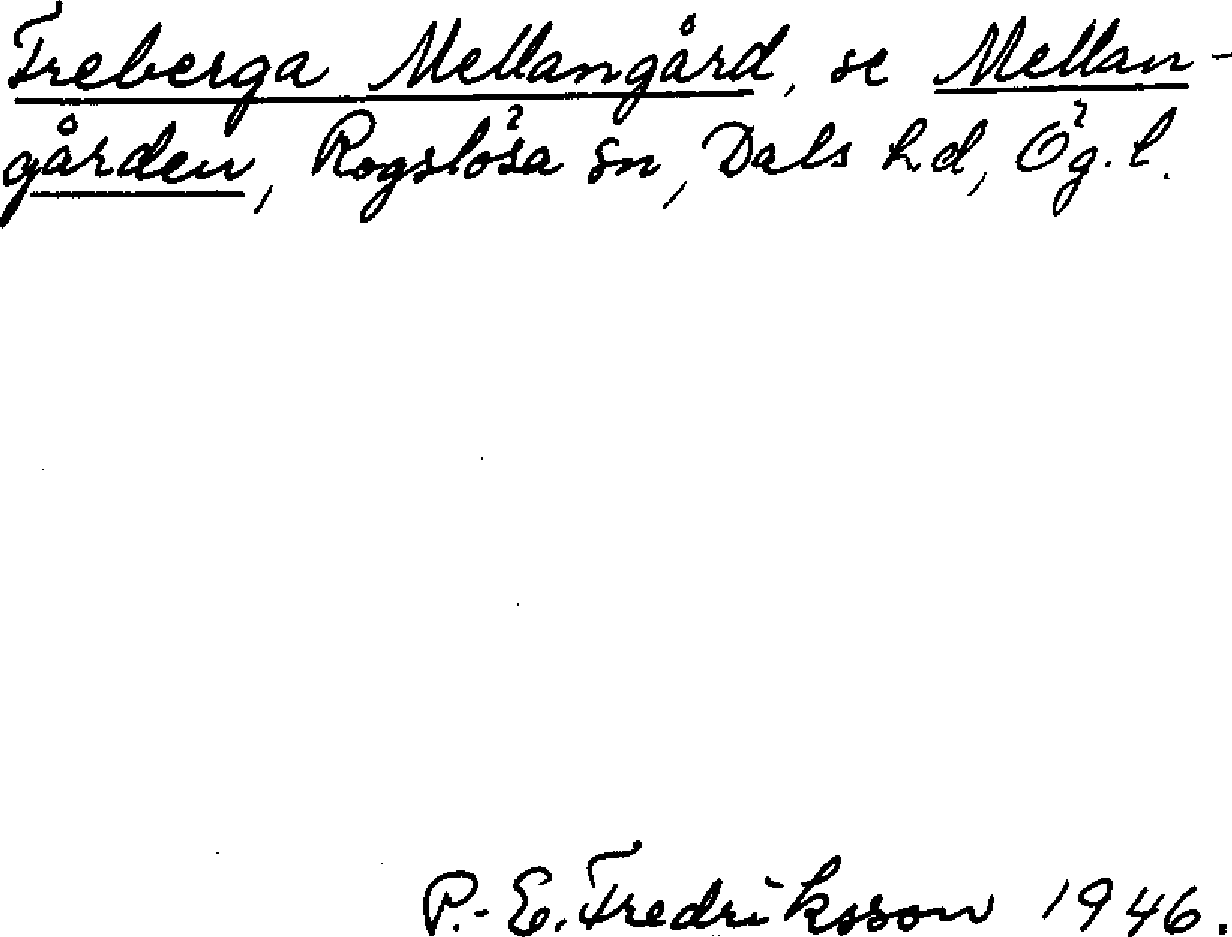 Freberga Mellangård, se Mellan-
gården, Rogslösa sn, Dals hd, Ög. l.
P.-E. Fredriksson 1946.